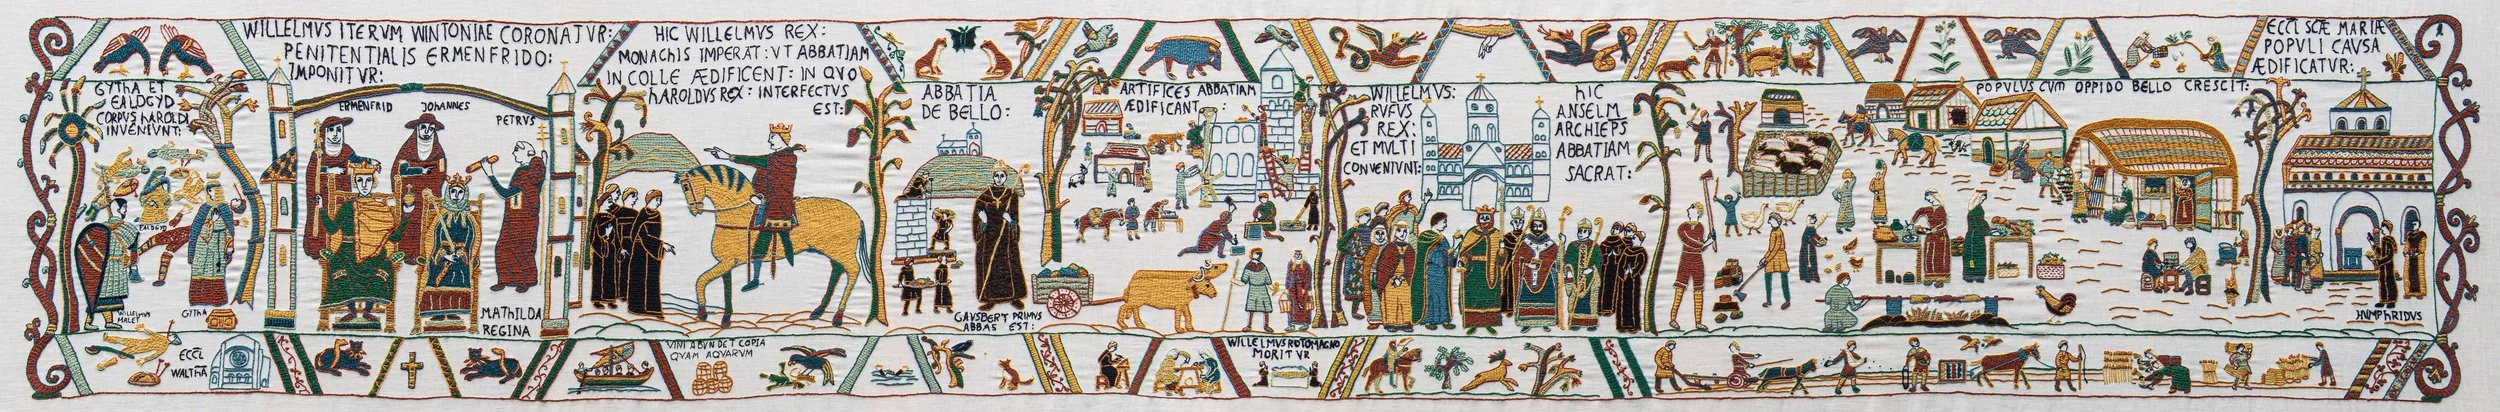 WILLELMVS ITERVM WINTONIAE CORONATVR:
PENITENTIALIS ERMENFRIDO:
IMPONITVR:
GYTHA ET
EALDGYD
CORPVS HAROLDI
INVENIVNT:
ERMENFRID
JOHANNES
PETRVS
EALDGYD
WILLELMVS
MALET
GYTHA
MATHILDA
REGINA
HIC WILLELMVS REX:
MONACHIS IMPERAT: VT ABBATIAM
IN COLLE ÆDIFICENT: IN QVO
HAROLDVS REX: INTERFECTVS
EST:
ABBATIA
DE BELLO:
GAVSBERT PRIMVS
ABBAS EST:
ARTIFICES ABBATIAM
ÆDIFICANT:
WILLELMVS:
RVFVS
REX:
ET MVLTI
CONVENIVNT:
HIC
ANSELM
ARCHIEPS
ABBATIAM
SACRAT:
POPVLVS CVM OPPIDO BELLO CRESCIT:
ECCL SCÆ MARIÆ
POPVLI CAVSA
ÆDIFICATVR:
HVMPHRIDVS
ECCL
WALTHĀ
VINI ABVNDET COPIA
QVAM AQVARVM
WILLELMVS ROTOMAGNO
MORITVR